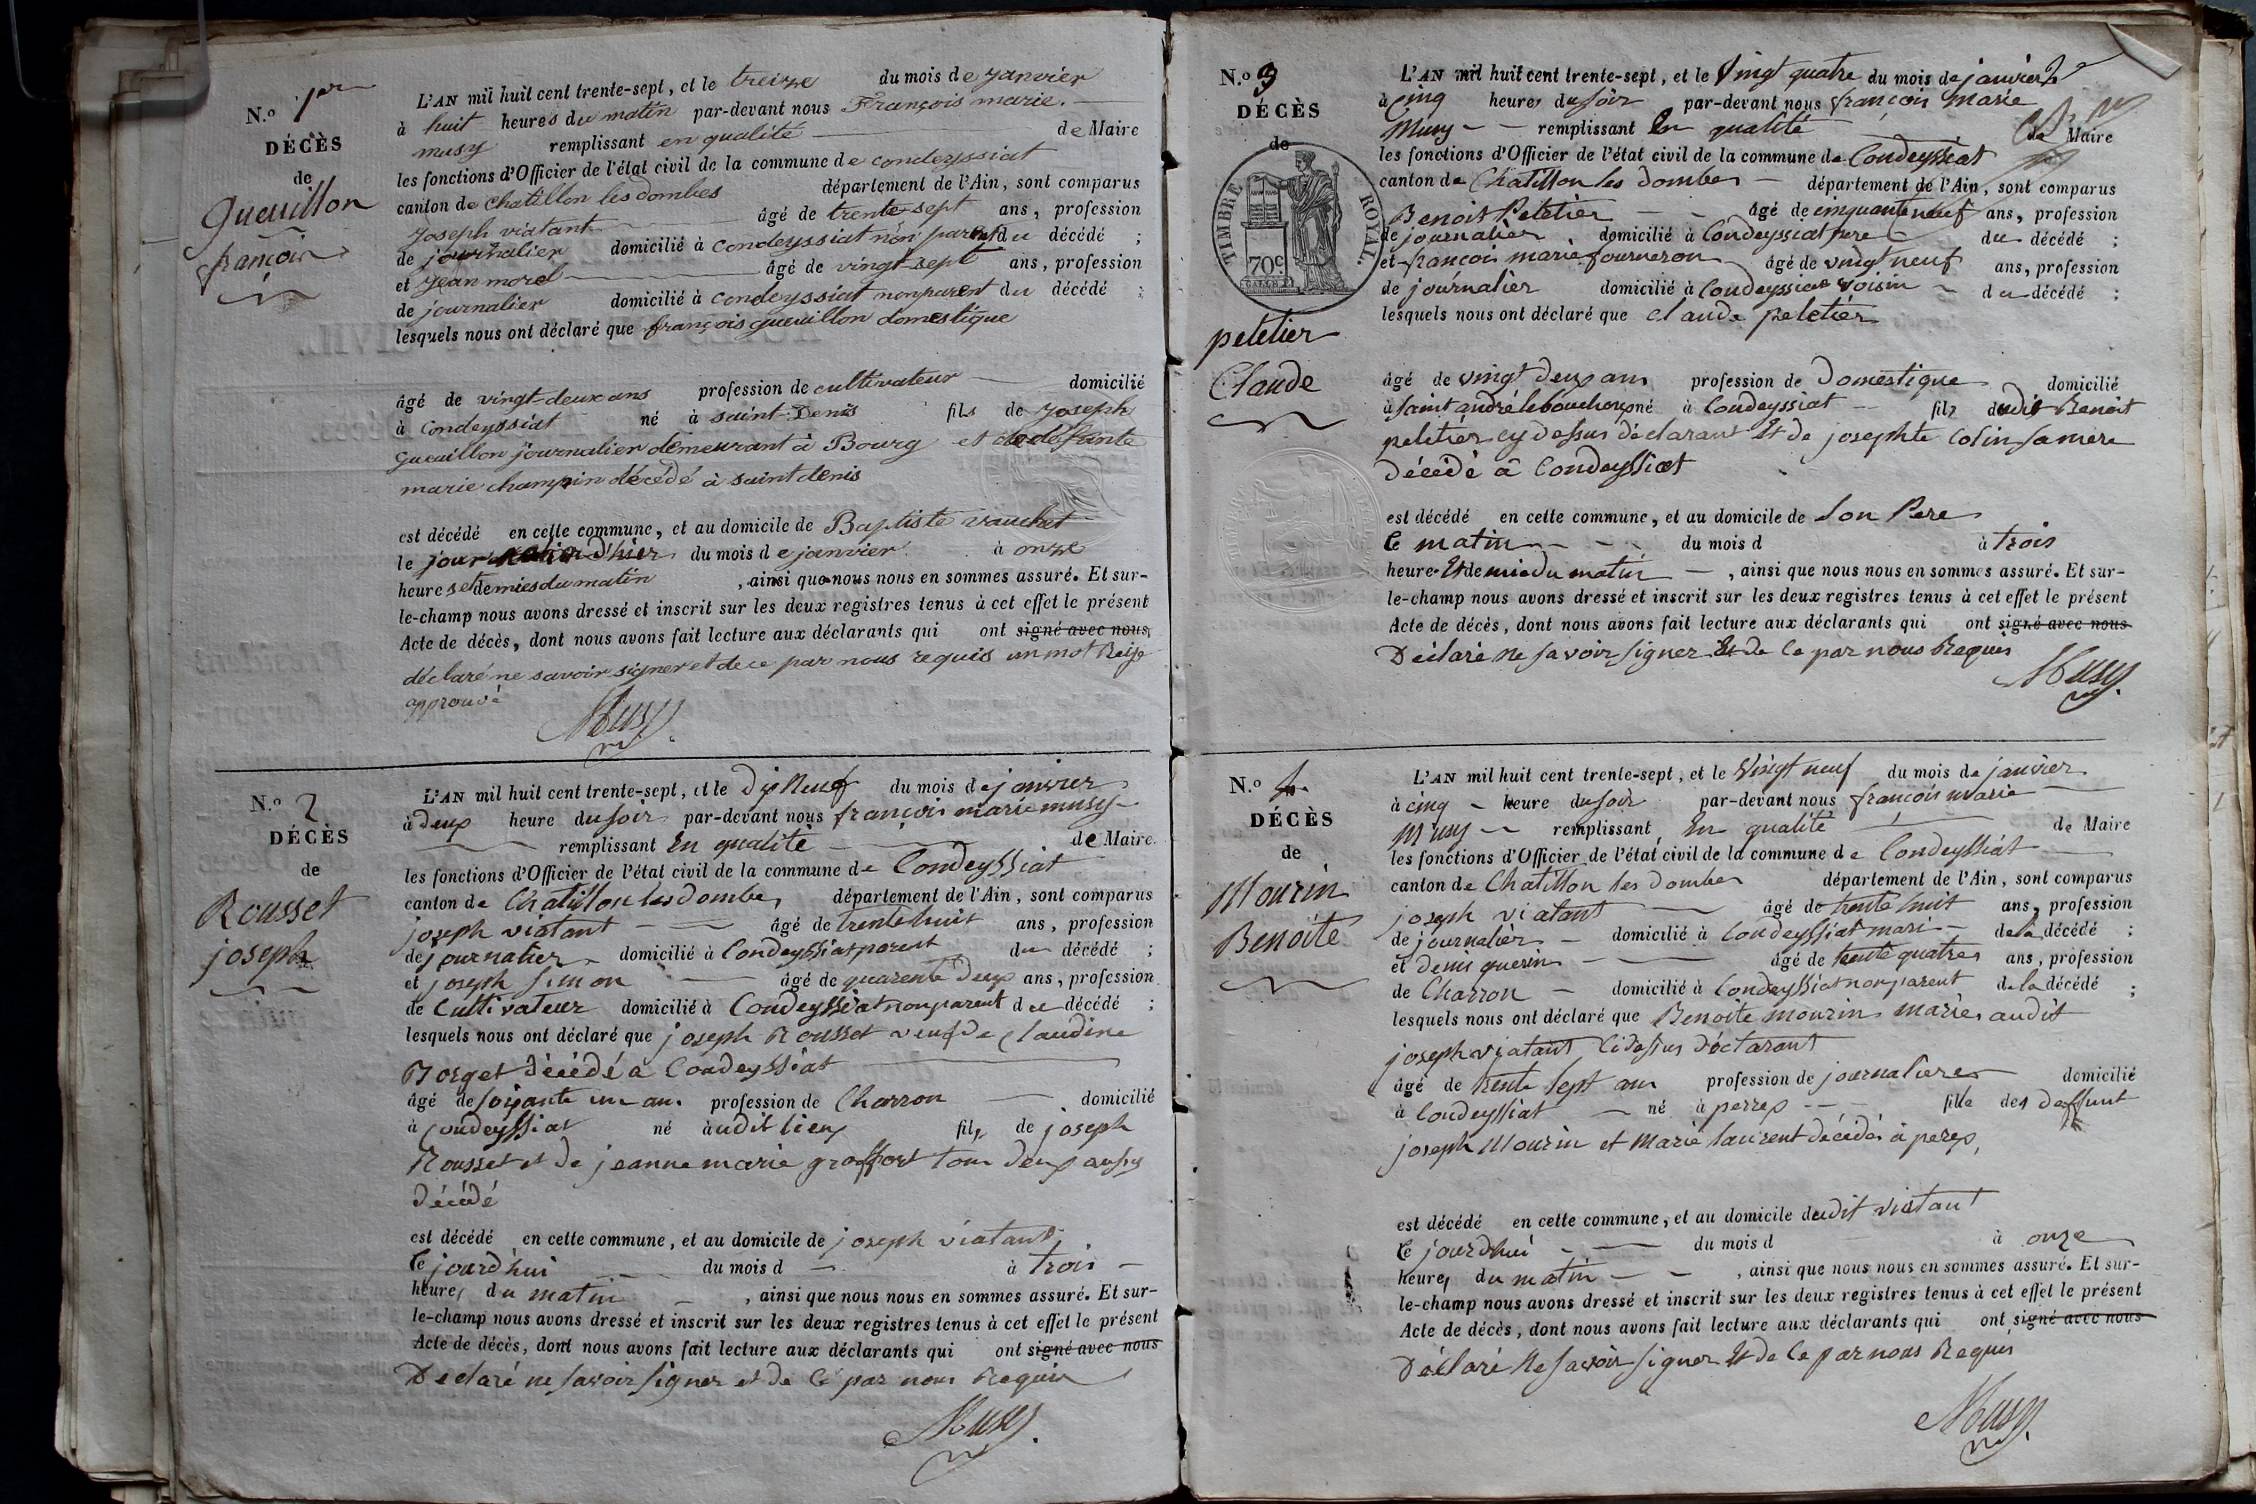 N.o 1er
DÉCÈS
de
Gueuillon
françois
L'AN mil huit cent trente-sept, et le treize du mois de janvier
à huit heures du matin par-devant nous François marie
musy remplissant en qualité de Maire
les fonctions d'Officier de l'état civil de la commune de condeyssiat
canton de chatillon les dombes département de l'Ain, sont comparus
joseph viatant âgé de trente-sept ans, profession
de journalier domicilié à condeyssiat non parent du décédé ;
et jean morel âgé de vingt-sept ans, profession
de journalier domicilié à condeyssiat non parent du décédé ;
lesquels nous ont déclaré que françois gueuillon domestique
âgé de vingt-deux ans profession de cultivateur domicilié
à condeyssiat né à saint-Denis fils de joseph
gueuillon journalier demeurant à Bourg et de defunte
marie champin décédé à saint denis
est décédé en cette commune, et au domicile de Baptiste vauchet
le jour d'hier du mois de janvier à onze
heures et demies du matin , ainsi que nous nous en sommes assuré. Et sur-
le-champ nous avons dressé et inscrit sur les deux registres tenus à cet effet le présent
Acte de décès, dont nous avons fait lecture aux déclarants qui ont signé avec nous
déclaré ne savoir signer et de ce par nous requis un mot Reyé
approuvé
Musy
N.o 2
DÉCÈS
de
Rousset
joseph
L'AN mil huit cent trente-sept, et le Dix Neuf du mois de janvier
à deux heure du soir par-devant nous françois marie musy
remplissant En qualité de Maire
les fonctions d'Officier de l'état civil de la commune de Condeyssiat
canton de Chatillon les dombes département de l'Ain, sont comparus
joseph viatant âgé de trente huit ans, profession
de journalier domicilié à Condeyssiat parent du décédé ;
et joseph simon âgé de quarente deux ans, profession
de Cultivateur domicilié à Condeyssiat non parent du décédé ;
lesquels nous ont déclaré que joseph Rousset veuf de Claudine
Borget décédé à Condeyssiat
âgé de soixante un an. profession de Charron domicilié
à Condeyssiat né audit lieux fils de joseph
Rousset et de jeanne marie groffort tous deux aussy
décédé
est décédé en cette commune, et au domicile de joseph viatant
le jourd'hui du mois d à trois
heures du matin , ainsi que nous nous en sommes assuré. Et sur-
le-champ nous avons dressé et inscrit sur les deux registres tenus à cet effet le présent
Acte de décès, dont nous avons fait lecture aux déclarants qui ont signé avec nous
Déclaré ne savoir signer et de ce par nous Requis
Musy
N.o 3
DÉCÈS
de
TIMBRE ROYAL.
70c
peletier
Claude
L'AN mil huit cent trente-sept, et le Vingt quatre du mois de janvier
à cinq heures du soir par-devant nous françois marie
Musy remplissant En qualité de Maire
les fonctions d'Officier de l'état civil de la commune de Condeyssiat
canton de Chatillon les dombes département de l'Ain, sont comparus
Benoit Peletier âgé de cinquante neuf ans, profession
de journalier domicilié à Condeyssiat pere du décédé ;
et françois marie fourneron âgé de vingt neuf ans, profession
de journalier domicilié à Condeyssiat voisin du décédé ;
lesquels nous ont déclaré que claude peletier
âgé de vingt deux ans profession de Domestique domicilié
à saint andré le bouchoux né à Condeyssiat fils dudit Benoit
peletier cy dessus déclarant Et de josephte Colin sa mere
décédé à Condeyssiat
est décédé en cette commune, et au domicile de son Pere
le matin du mois d à trois
heure Et demie du matin , ainsi que nous nous en sommes assuré. Et sur-
le-champ nous avons dressé et inscrit sur les deux registres tenus à cet effet le présent
Acte de décès, dont nous avons fait lecture aux déclarants qui ont signé avec nous
Déclaré ne savoir signer Et de ce par nous Requis
Musy
N.o 4
DÉCÈS
de
Mourin
Benoite
L'AN mil huit cent trente-sept, et le Vingt neuf du mois de janvier
à cinq heure du soir par-devant nous françois marie
Musy remplissant En qualité de Maire
les fonctions d'Officier de l'état civil de la commune de Condeyssiat
canton de Chatillon les dombes département de l'Ain, sont comparus
joseph viatant âgé de trente huit ans, profession
de journalier domicilié à Condeyssiat mari de la décédé ;
et Denis guerin âgé de trente quatre ans, profession
de Charron domicilié à Condeyssiat non parent de la décédé ;
lesquels nous ont déclaré que Benoite mourin mariée audit
joseph viatant cidessus déclarant
âgé de trente sept ans profession de journaliere domicilié
à Condeyssiat né à perrex fille des deffunt
joseph Mourin et Marie laurent décédés à perex,
est décédé en cette commune, et au domicile dudit viatant
le jourdhui du mois d à onze
heures du matin , ainsi que nous nous en sommes assuré. Et sur-
le-champ nous avons dressé et inscrit sur les deux registres tenus à cet effet le présent
Acte de décès, dont nous avons fait lecture aux déclarants qui ont signé avec nous
Déclaré Ne savoir signer Et de ce par nous Requis
Musy